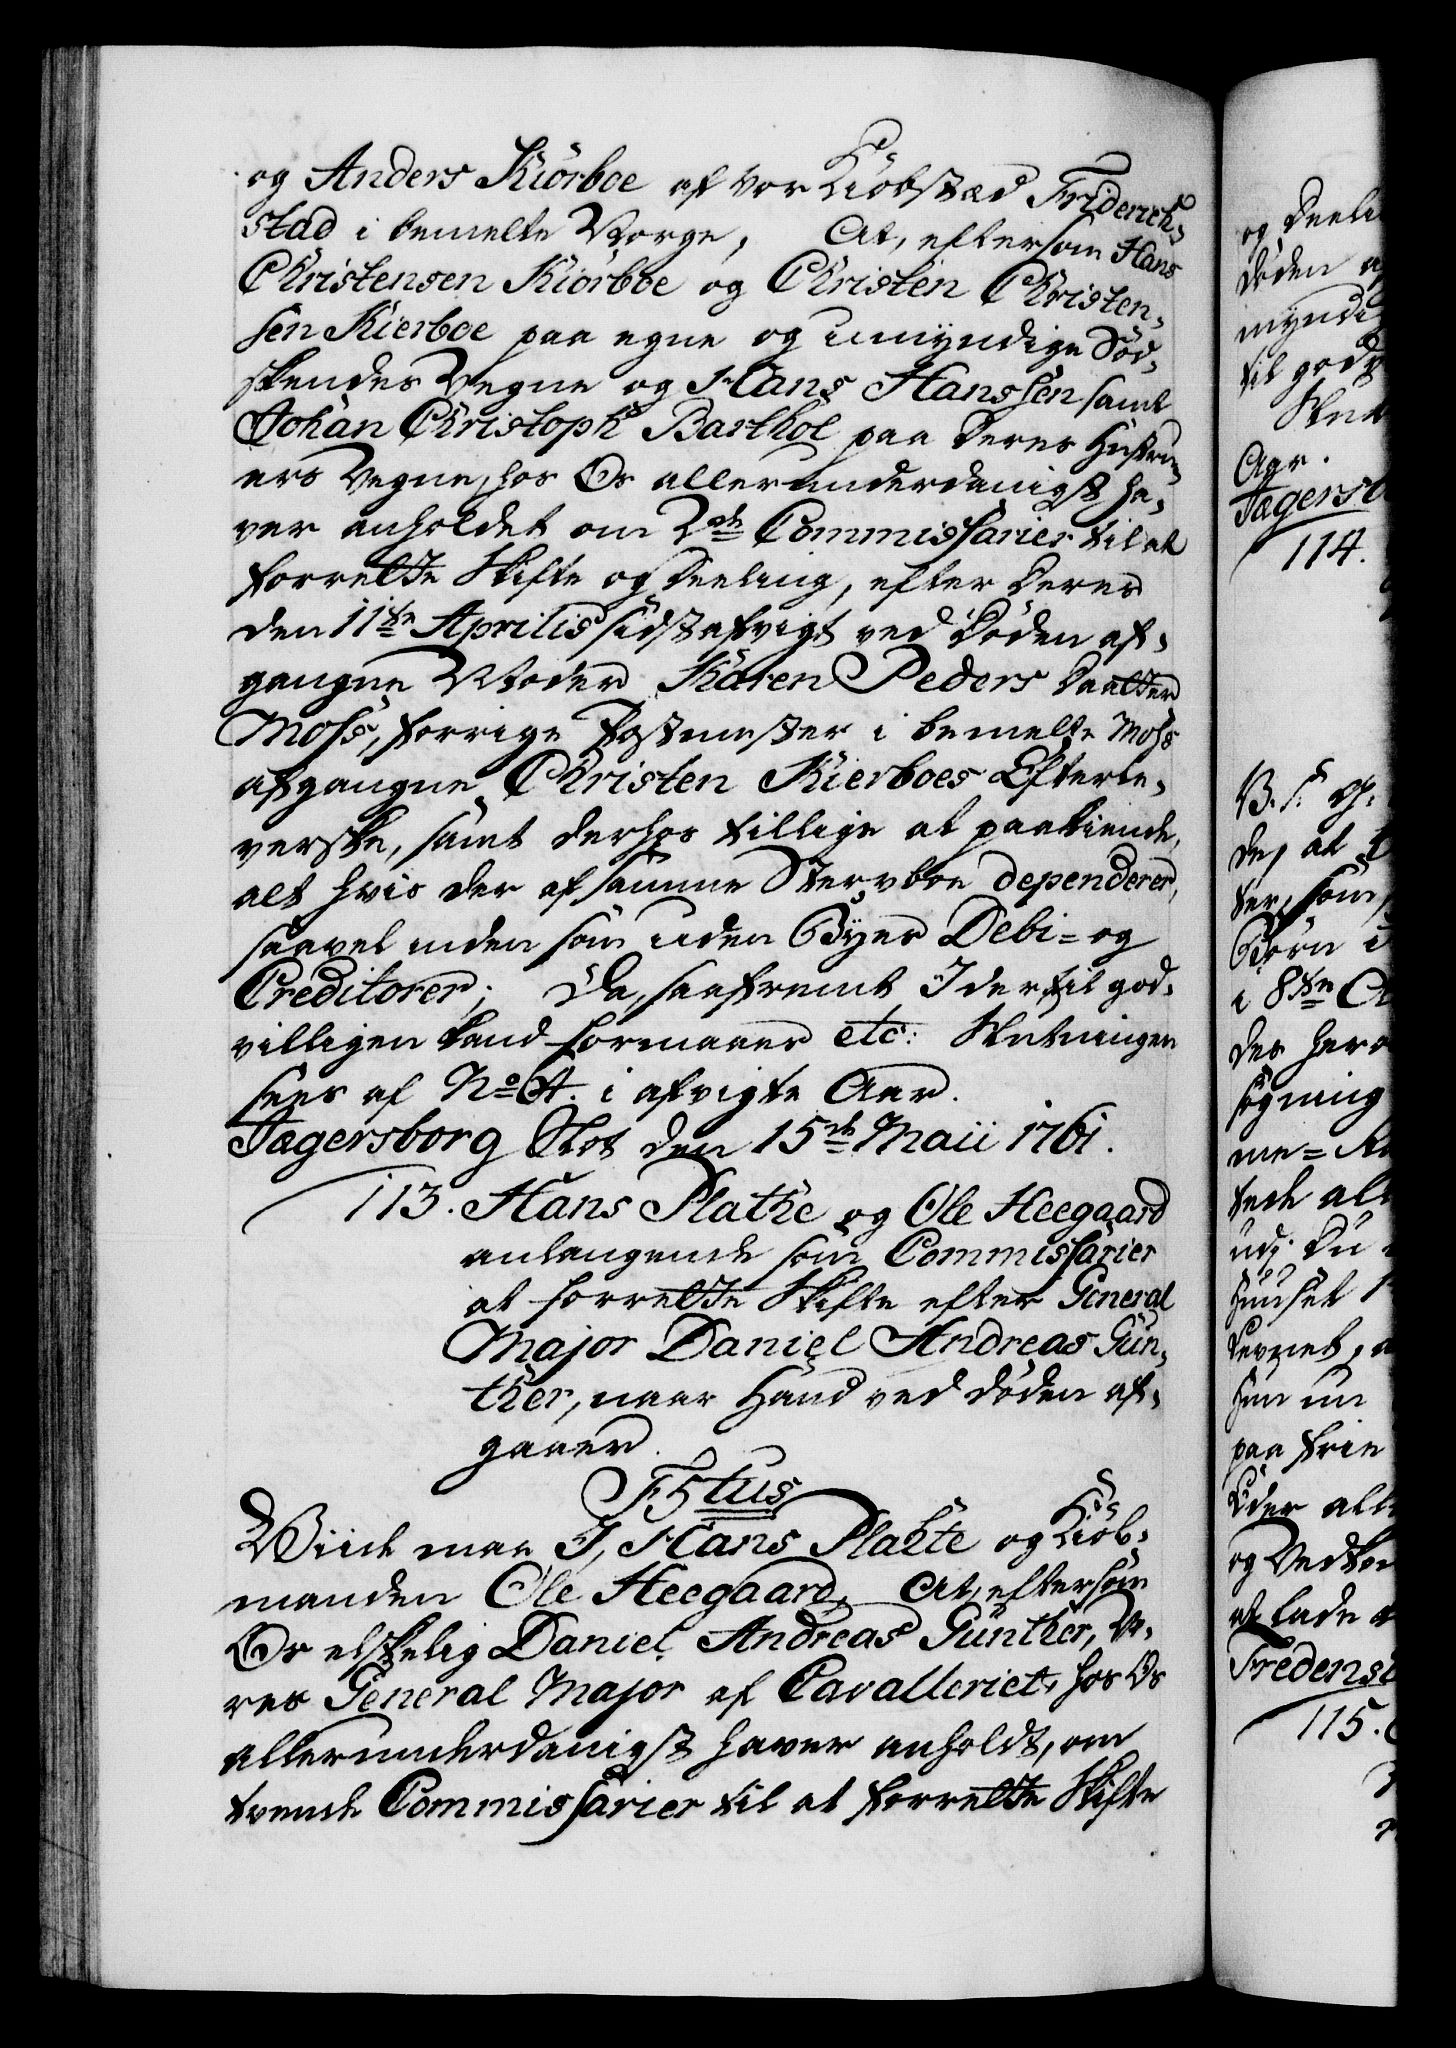 og Anders Kiörboe af vor Kiöbstæd Friderich-
stad i bemelte Norge, At, eftersom Hans
Christensen Kiörboe og Christen Christen-
sen Kierboe paa egne og umyndige Sød-
skendes Vegne og Hans Hanssen samt
Johan Christoph Barthol paa deres Hustru-
ers Vegne, hos Os allerunderdanigst ha-
ver anholdet om 2de Commissarier til at
forrette Skifte og Deeling, efter deres
den 11te Aprilis sidstafvigt ved Døden af-
gangne Moder Karen Peders Daatter
Moss, forrige Postmester i bemelte Moss
afgangne Christen Kierboes Efterle-
verske, samt derhos tillige at paakiende,
alt hvis der af samme Stervboe dependerer,
saavel inden som uden Byes Debi- og
Creditorer; Da, saafremt I dertil god-
villigen kand formaaes etc: Slutningen
sees af No 4. i afvigte Aar.
Jægersborg Slot den 15de Maii 1761.
113. Hans Plathe og Ole Heegaard
anlangende som Commissarier
at forrette Skifte efter General
Major Daniel Andreas Gün-
ther, naar Hand ved døden af-
gaaer.
F5tus
Viide maa I, Hans Plahte og Kiöb-
manden Ole Heegaard, At, eftersom
Os elskelig Daniel Andreas Günther, Vo-
res General Major af Cavalleriet, hos Os
allerunderdanigst haver anholdt, om
tvende Commissarier til at forrette Skifte
og Deeli
døden a
myndi
til gods
Slut
Aar.
Jægersb
114.
B. S. G.
de, at
ter, som
Börn i
i 8te
des her
søgning
me-
tede all
udj. Du
Huuset
Levnet,
hun un
paa frie
Eder all
og Vedkom
at lade
Fredensb
115.